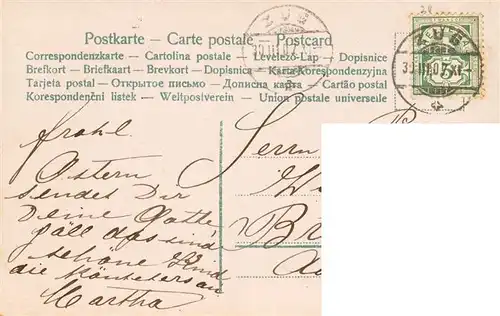 ZUG
ZUG
Postkarte - Carte postale - Postcard
Correspondenzkarte - Cartolina postale - Levelező-Lap - Dopisnice
Brefkort - Briefkaart - Brevkort - Dopisnica - Karta Korespondenzyjna
Tarjeta postal - Открытое письмо - Дописна карта - Cartão postal
Korespondenční listek - Weltpostverein - Union postale universelle
Frohl.
Ostern
sendet Dir
Deine Gotte
gäll das sind
schöne
die
Martha
Herrn